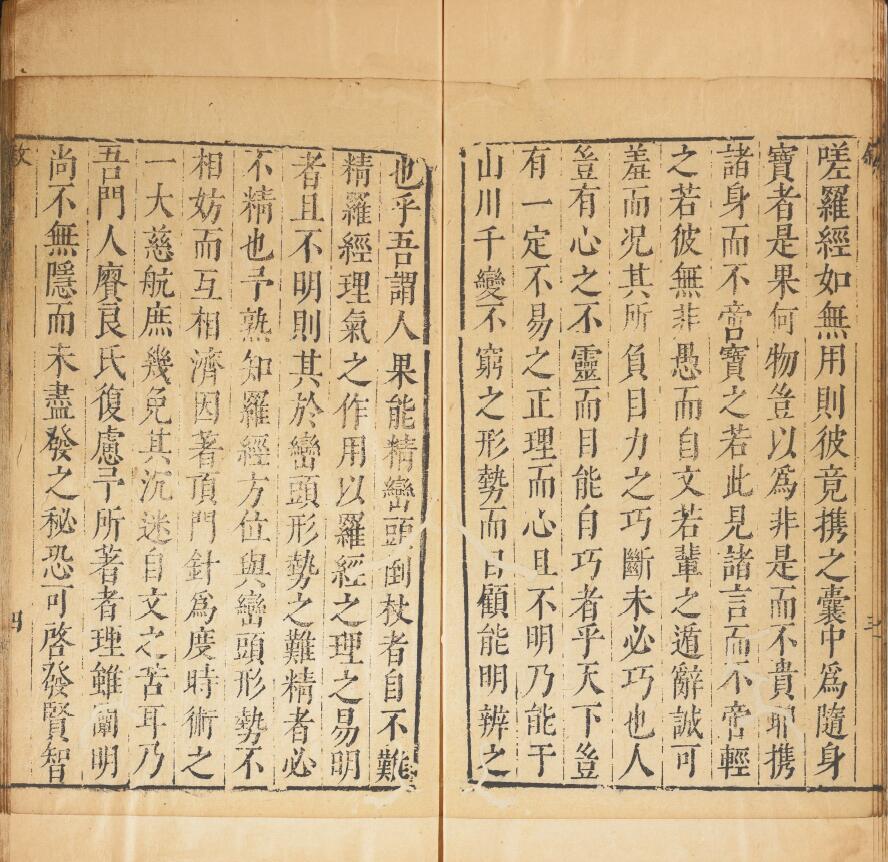 嗟羅經如無用則彼竟携之囊中爲隨身
寶者是果何物豈以爲非是而不貴耶携
諸身而不啻寶之若此見諸言而不啻輕
之若彼無非愚而自文若輩之遁辭誠可
羞而况其所負目力之巧斷未必巧也人
豈有心之不靈而目能自巧者乎天下豈
有一定不易之正理而心且不明乃能于
山川千變不窮之形勢而目顧能明辨之
也乎吾謂人果能精巒頭倒杖者自不難
精羅經理氣之作用以羅經之理之易明
者且不明則其於巒頭形勢之難精者必
不精也予熟知羅經方位與巒頭形勢不
相妨而互相濟因著頂門針爲度時術之
一大慈航庶幾免其沉迷自文之苦耳乃
吾門人賡良氏復慮予所著者理雖闡明
尚不無隱而未盡發之秘恐可啓發賢智
四